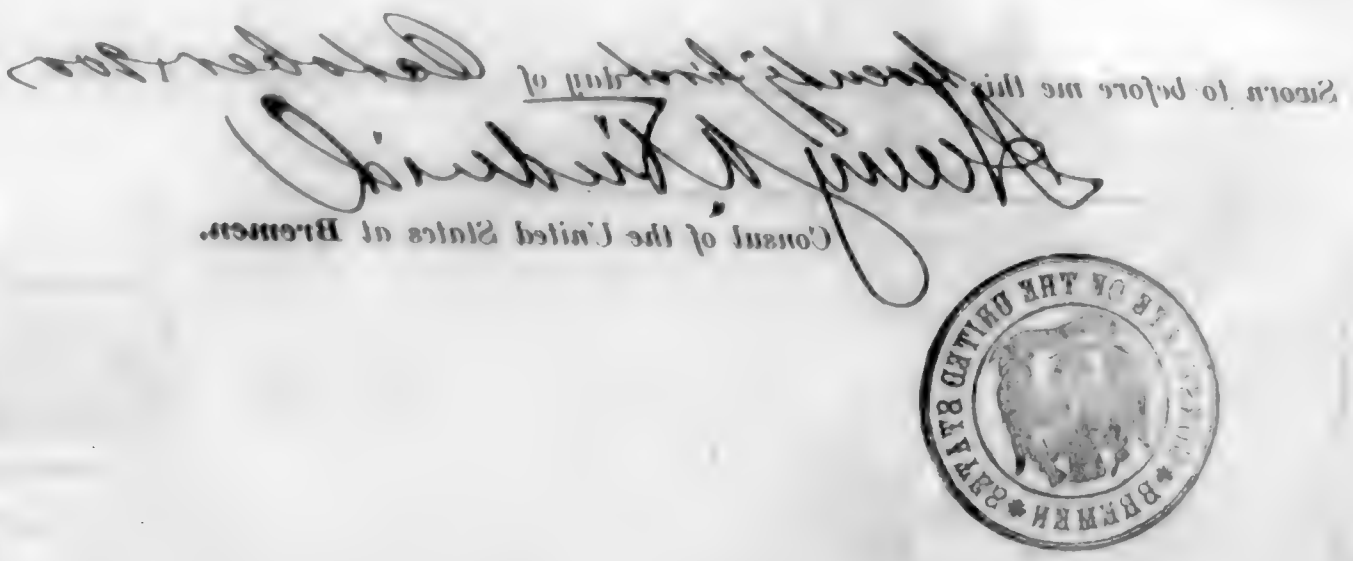 Sworn to before me this twenty first day of October
Henry W. Diederich
Consul of the United States at Bremen.
CONSULATE OF THE UNITED STATES * BREMEN *